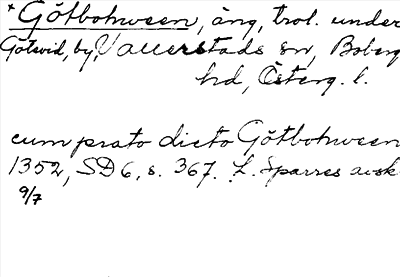 * Götbohween, äng, trol. under
Götevid, by, Vallerstads sn, Boberg
hd, Österg. l.
cum prato dicto Götbohween
1352, SD 6, s. 367. L. Sparres avsk
9/7